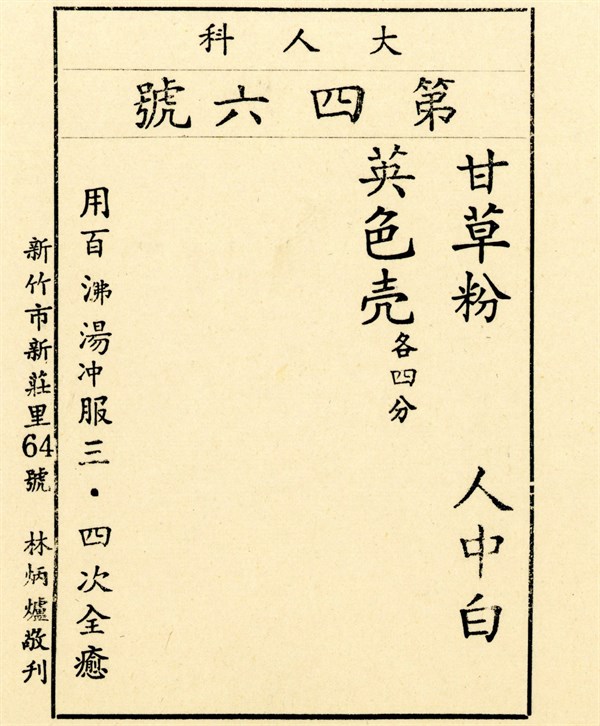 大人科
第四六號
甘草粉 人中白
英色壳各四分
用百沸湯冲服三・四次全癒
新竹市新莊里64號 林炳爐敬刊